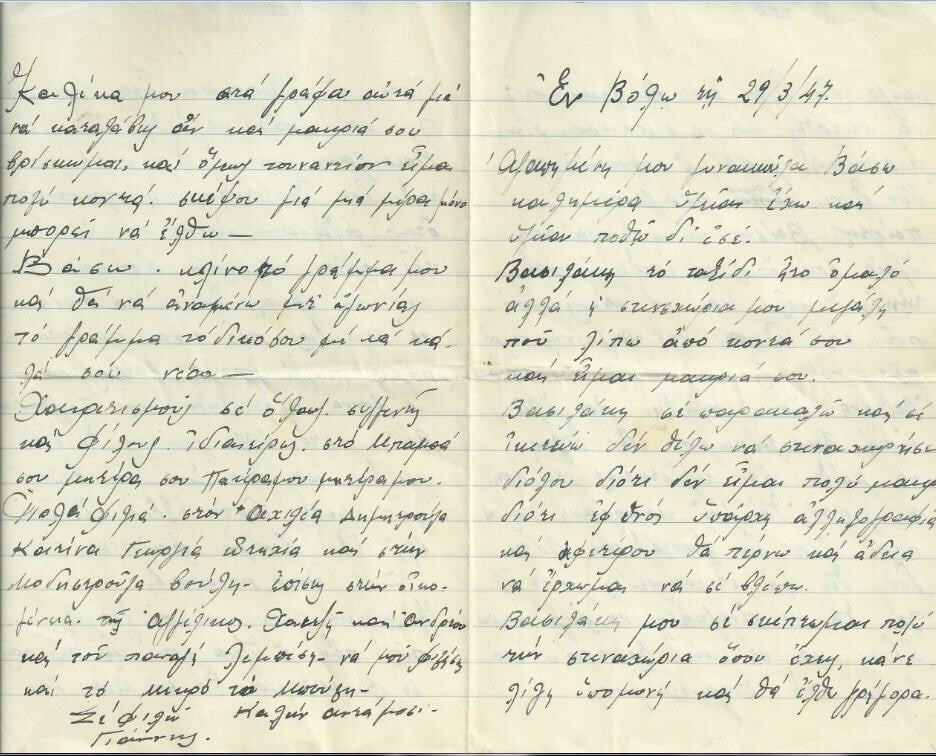 Ἐν Βόλῳ τῇ 29/3/47.
Ἀγαπημένη μου γυναικοῦλα Βάσω
καλημέρα ὑγείαν ἔχω καί
ὑγείαν ποθῶ δι ἐσέ.
Βασιλάκη τό ταξίδι ἦτο ὁμαλό
ἀλλά ἡ στενοχώρια μου μεγάλη
ποῦ λίπω ἀπό κοντά σου
καί εἶμαι μακριά σου.
Βασιλάκη σέ παρακαλῶ καί σέ
ἱκετεύω δέν θέλω να στεναχωρῆσε
διόλου διότι δέν εἶμαι πολύ μακρ
διότι ἐφ ἑνός ὑπάρχη ἀλληλογραφία
καί ἀφετέρου θά πέρνω καί ἄδεια
νά ἔρχωμαι νά σέ βλέπω.
Βασιλάκη μου σέ σκέπτωμαι πολύ
τήν στεναχώρια ὅπου ἔχεις, κάνε
λίγη ὑπομονή καί θά ἔλθω γρήγορα.
μου στά γράφω αὐτά γιά
νά καταλάβης ἄν καί μακριά σου
βρίσκωμαι, καί ὅμως τουναντίον εἶμαι
πολύ κοντά. σκέψου μιά μιά μέρα μόνο
μπορεῖ νά ἔλθω —
Βάσω. κλίνο τό γράμμα μου
καί θά νά ἀναμένω μέ ἀγωνίας
τό γράμμα τό δικόσου μέ τά κα-
λά σου νέα —
Χαιρετισμούς σέ ὅλους. συγγενῆς
καί φίλους. ἰδιαιτέρως. στό Μπαμπά
σου μητέρα σου Πατέραμου μητέραμου.
Πολά φιλιά. στόν Ἀχιλέα Δημητρούλα
Κατίνα Γεωργία εὐτηχία καί στήν
Μοδηστρούλα βούλη- ἐπίσης στήν οἰκο-
γένεια. τῆς Ἀγγέλικας. καί Ἀνδρέου
καί τόν νά μοῦ φιλήσης
καί τό μικρό τό
Σέ φιλῶ Καλήν αντάμοσι-
Γιάννης.